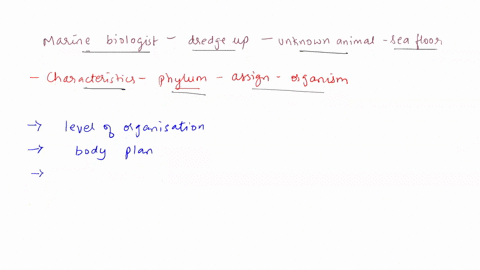 Marine biologist - dredge up - unknown animal - sea floor
- Characteristics - phylum - assign - organism
→ level of organisation
→ body plan
→